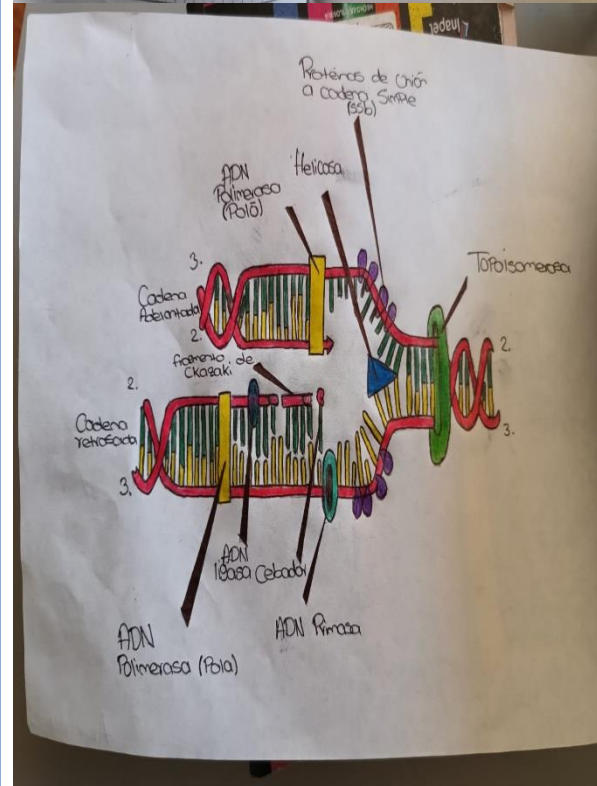 Linapel
Proteínas de unión
a cadena simple
(SSb)
ADN
Polimerasa
(Polδ)
Helicasa
Topoisomerasa
3.
Cadena
Adelantada
2.
fragmento de
Okasaki
2.
Cadena
retrosada
3.
2.
3.
ADN
ligasa
Cebador
ADN Primasa
ADN
Polimerasa (Pola)